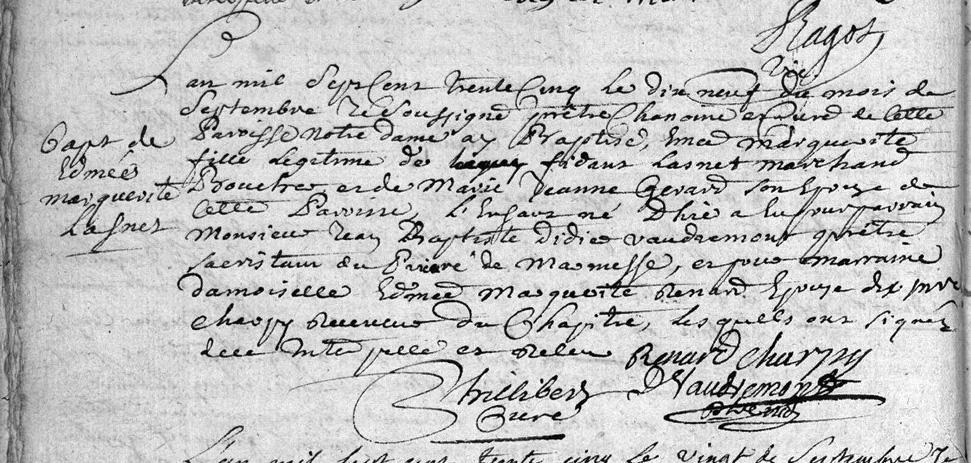 Ragot
vic
Lan mil Sept Cent trente Cinq le dix neuf du mois de
Septembre Je Soussigné prêtre Chanoine et Curé de Cette
Paroisse notre dame ay Baptisé, Emée marguerite
fille Legitime de fidant Lasnet marchand
Boucher, et de Marie Jeanne Gerard son Epouse de
Cette Paroisse, L'Enfant né D'hier a Eu pour parrain
Monsieur Jean Baptiste didier vaudremont prêtre
sacristain du Prieuré de Marnesse, et pour marraine
damoiselle Edmeé Marguerite Renard Epouse du
charpy Receveur du Chapitre, lesquels ont signez
Renard Charpy
Phillibert D Vaudremont
Curé
Bapt de
Edmeé
marguerite
Lasnet
L'an mil sept cent trente cinq le vingt de Septembre Je